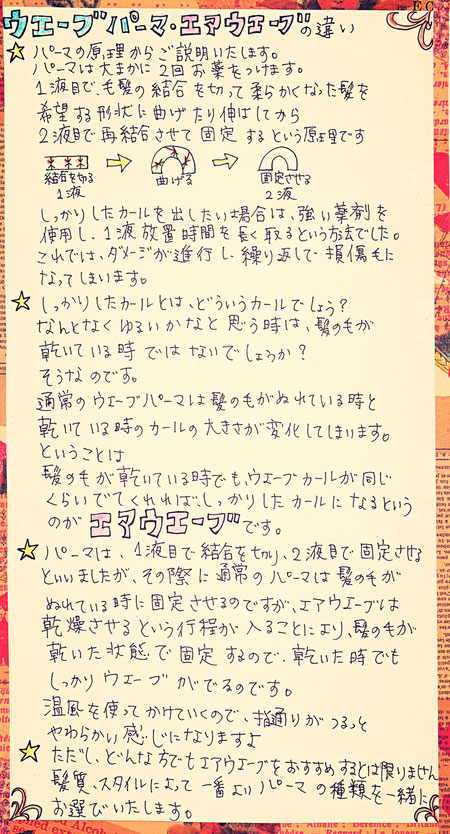 E.C
ウエーブパーマ・エアウエーブの違い
☆ パーマの原理からご説明いたします。
パーマは大まかに2回お薬をつけます。
1液目で、毛髪の結合を切って柔らかくなった髪を
希望する形状に曲げたり伸ばしてから
2液目で再結合させて固定するという原理です
結合を切る 曲げる 固定させる
1液 2液
しっかりしたカールを出したい場合は、強い薬剤を
使用し、1液放置時間を長く取るという方法でした。
これでは、ダメージが進行し、繰り返しで損傷毛に
なってしまいます。
☆ しっかりしたカールとは、どういうカールでしょう?
なんとなくゆるいかなと思う時は、髪の毛が
乾いている時ではないでしょうか?
そうなのです。
通常のウエーブパーマは髪の毛がぬれている時と
乾いている時のカールの大きさが変化してしまいます。
ということは
髪の毛が乾いている時でも、ウエーブカールが同じ
くらいでてくれれば、しっかりしたカールになるという
のがエアウエーブです。
☆ パーマは、1液目で結合を切り、2液目で固定させる
といいましたが、その際に通常のパーマは髪の毛が
ぬれている時に固定させるのですが、エアウエーブは
乾燥させるという行程が入ることにより、髪の毛が
乾いた状態で固定するので、乾いた時でも
しっかりウエーブがでるのです。
温風を使ってかけていくので、指通りがつるっと
やわらかい感じになりますよ
☆ ただし、どんな方でもエアウエーブをおすすめするとは限りません
髪質、スタイルによって一番よいパーマの種類を一緒に
お選びいたします。